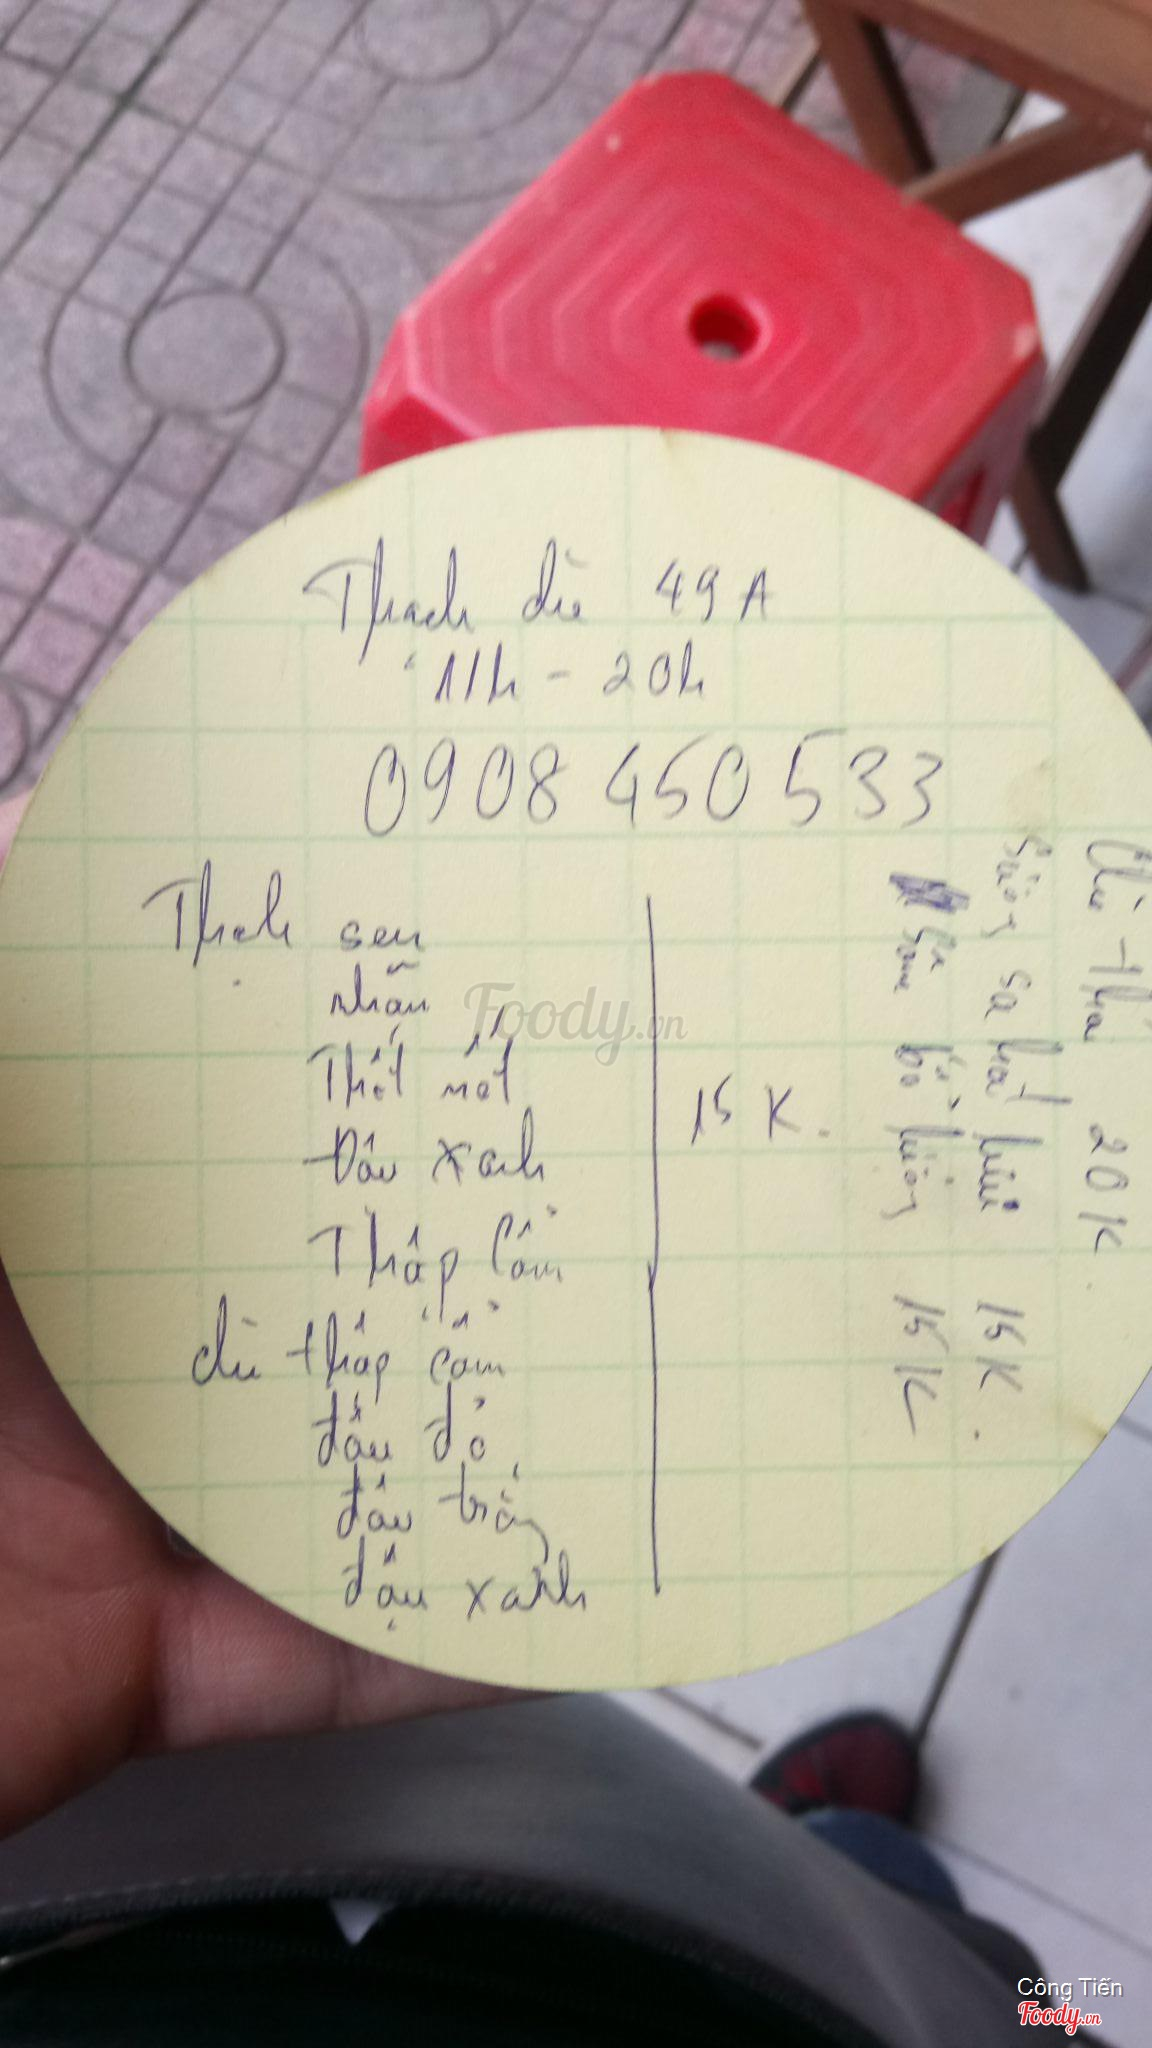 Thạch chè 49A
11h - 20h
0908 450 533
Thạch sen
nhãn
Thốt nốt
Đậu xanh
Thập Cẩm
15 K.
chè thập cẩm
đậu đỏ
đậu trắng
đậu xanh
Chè thái 20K.
Sương sa hạt lựu 15K.
15K
Foody.vn
Công Tiến
Foody.vn